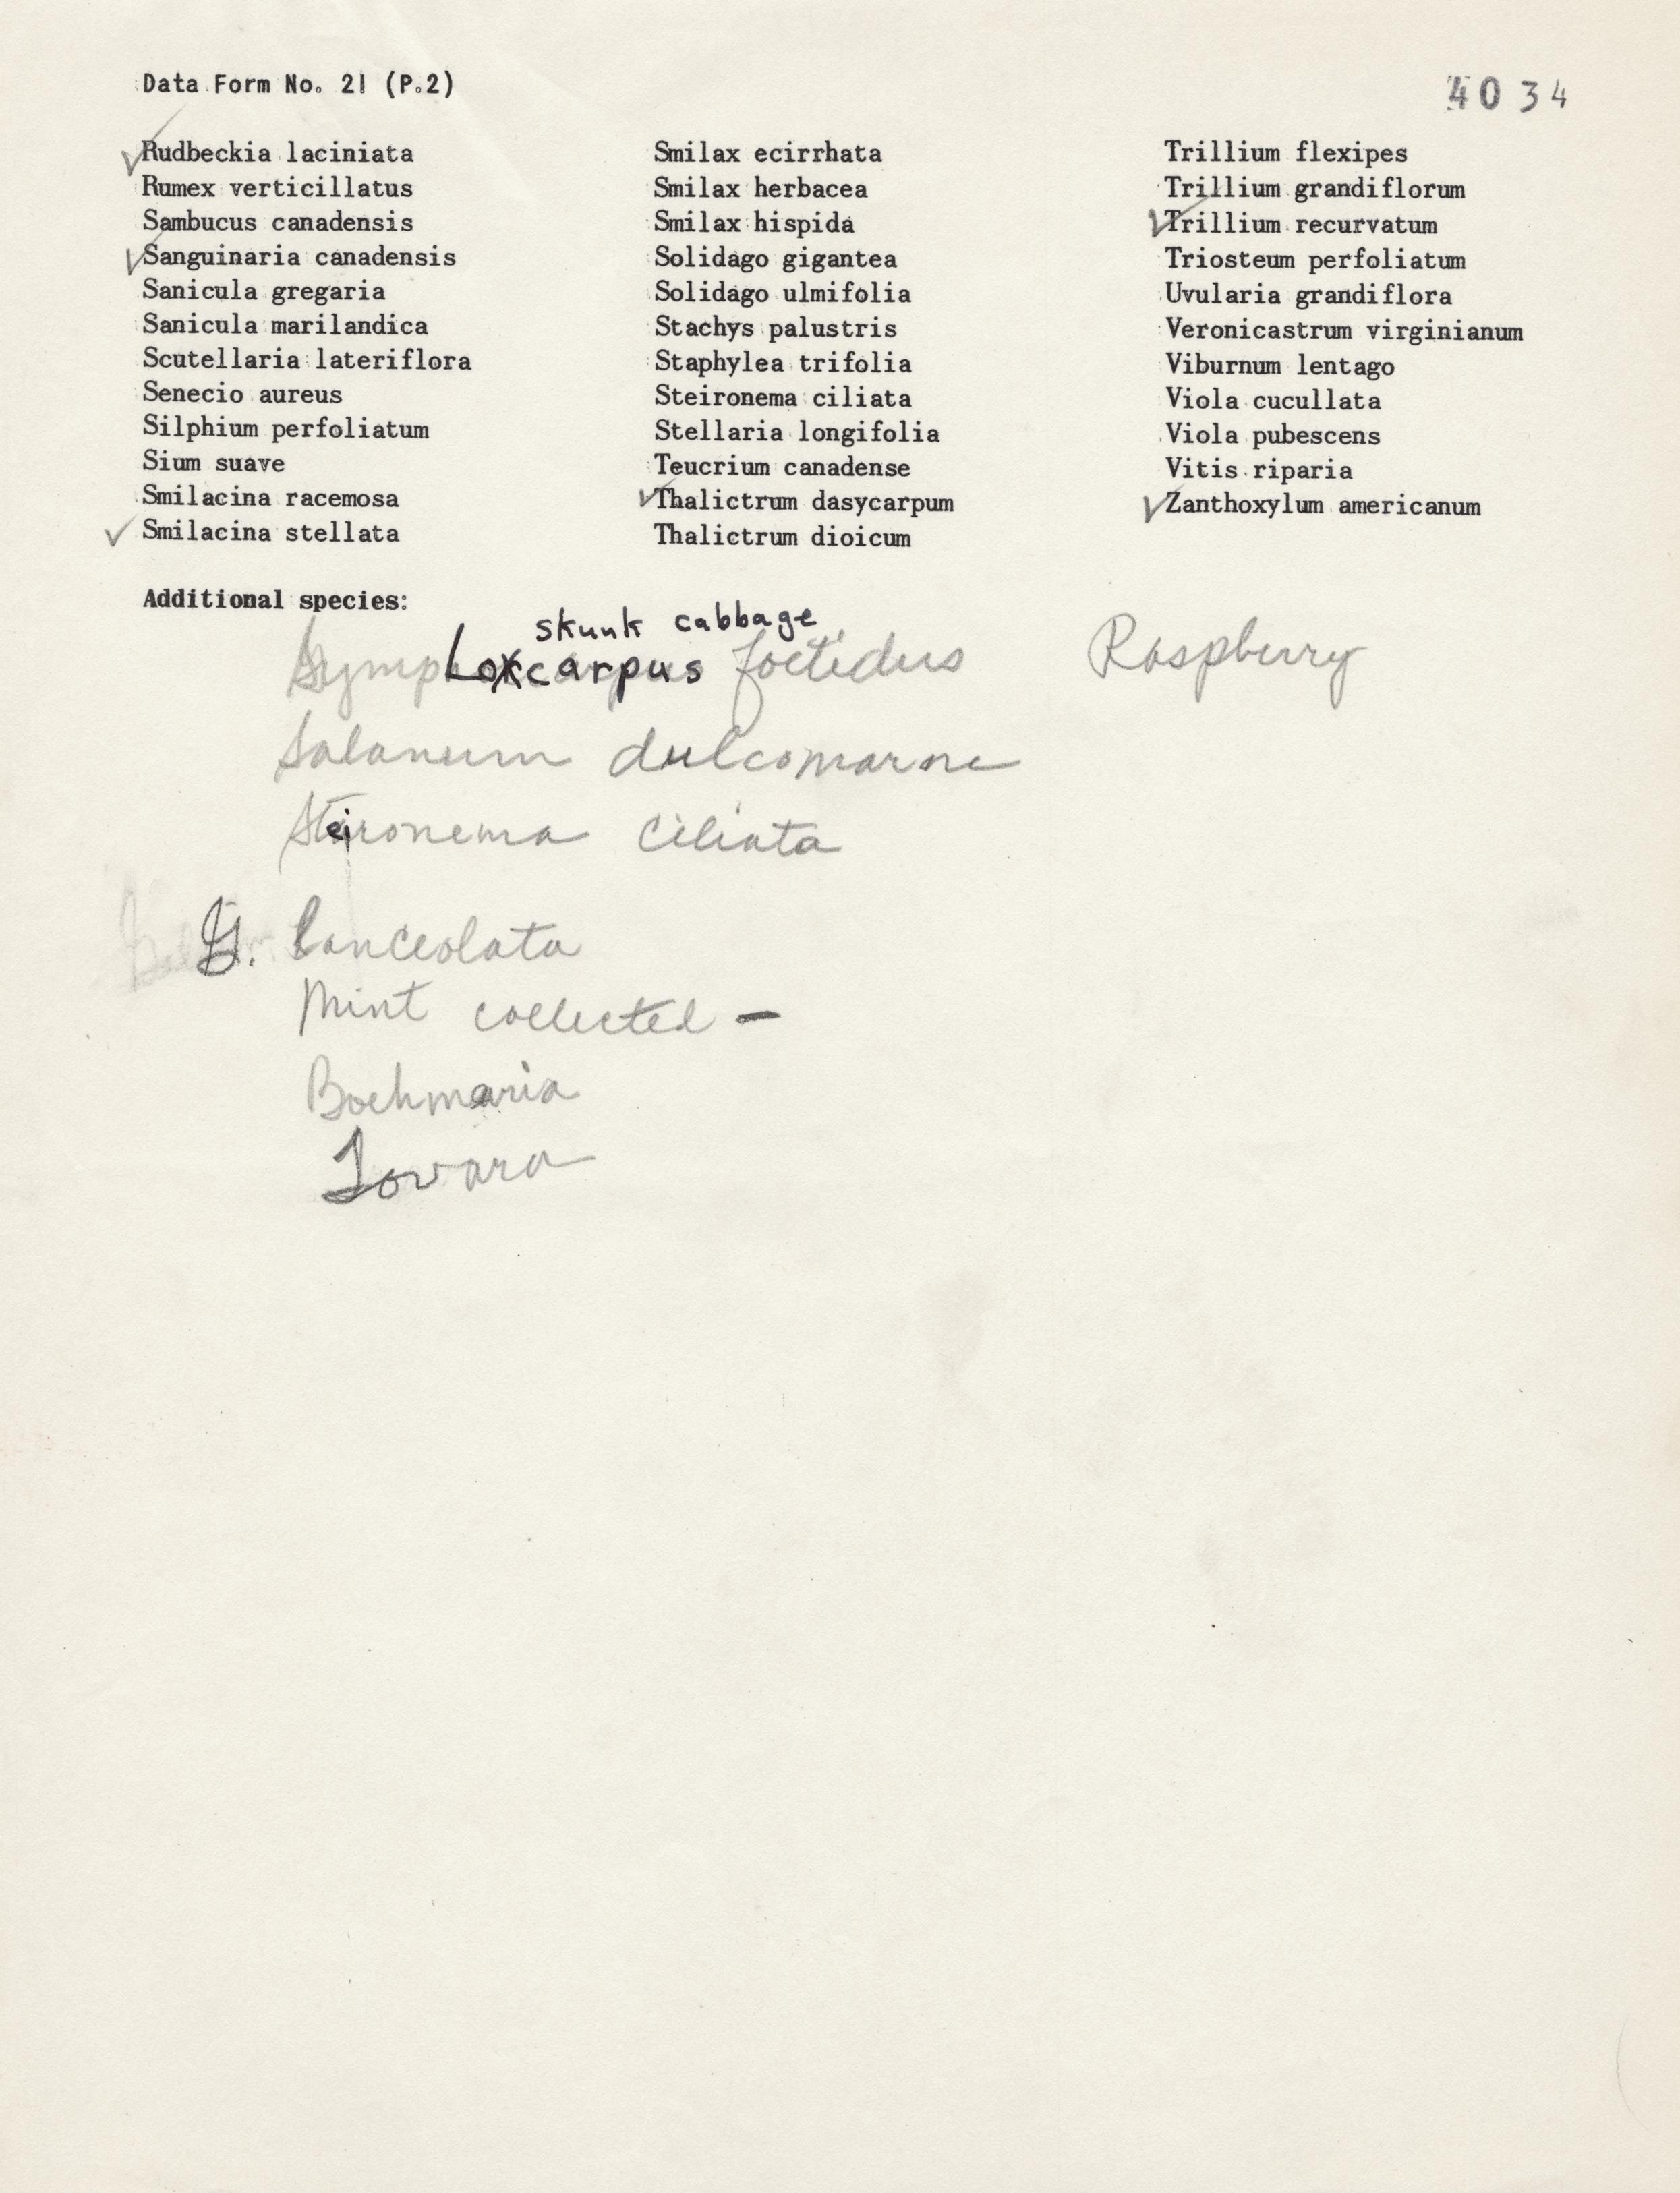 Data Form No. 21 (P.2)
4034
✓Rudbeckia laciniata
Rumex verticillatus
Sambucus canadensis
✓Sanguinaria canadensis
Sanicula gregaria
Sanicula marilandica
Scutellaria lateriflora
Senecio aureus
Silphium perfoliatum
Sium suave
Smilacina racemosa
✓ Smilacina stellata
Smilax ecirrhata
Smilax herbacea
Smilax hispida
Solidago gigantea
Solidago ulmifolia
Stachys palustris
Staphylea trifolia
Steironema ciliata
Stellaria longifolia
Teucrium canadense
✓Thalictrum dasycarpum
Thalictrum dioicum
Trillium flexipes
Trillium grandiflorum
✓Trillium recurvatum
Triosteum perfoliatum
Uvularia grandiflora
Veronicastrum virginianum
Viburnum lentago
Viola cucullata
Viola pubescens
Vitis riparia
✓Zanthoxylum americanum
Additional species:
skunk cabbage
Symplocarpus foetidus
Raspberry
Solanum dulcomarne
Steironema ciliata
lanceolata
Mint collected -
Boehmaria
Tovara